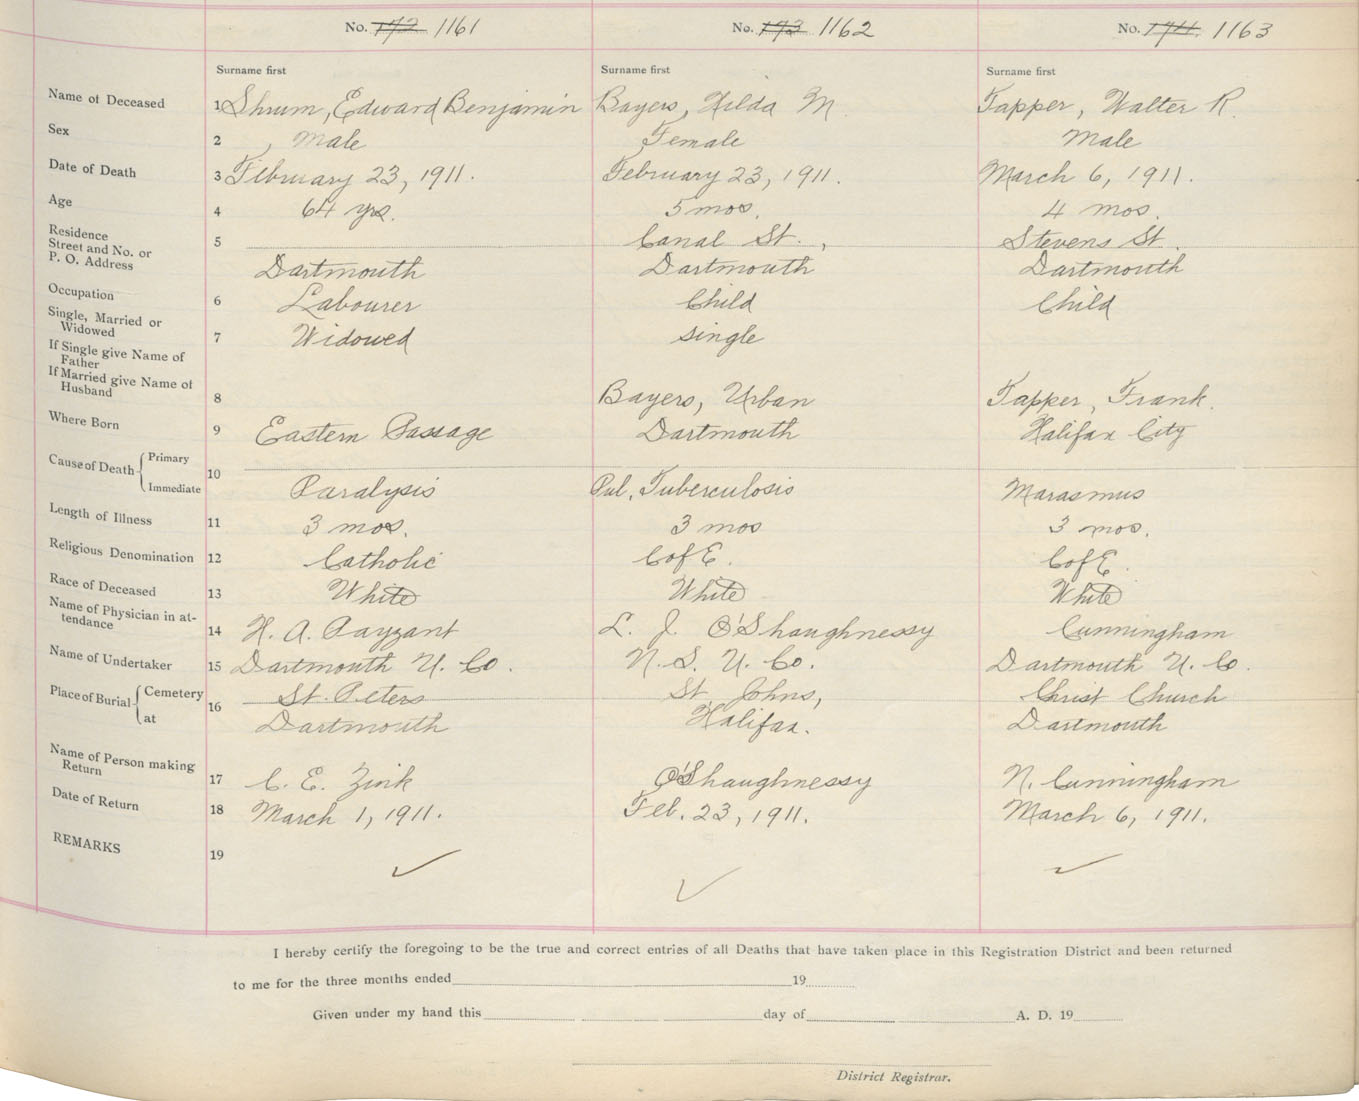 No. 172 1161 No. 173 1162 No. 174 1163
Surname first Surname first Surname first
Name of Deceased 1 Shrum, Edward Benjamin Bayers, Hilda M. Tapper, Walter R.
Sex 2 Male Female Male
Date of Death 3 February 23, 1911. February 23, 1911. March 6, 1911.
Age 4 64 yrs. 5 mos. 4 mos.
Residence
Street and No. or 5 Canal St., Stevens St.
P. O. Address Dartmouth Dartmouth Dartmouth
Occupation 6 Labourer Child Child
Single, Married or
Widowed 7 Widowed single
If Single give Name of
Father
If Married give Name of
Husband 8 Bayers, Urban Tapper, Frank.
Where Born 9 Eastern Passage Dartmouth Halifax City
Cause of Death Primary 10
Immediate Paralysis Pul. Tuberculosis Marasmus
Length of Illness 11 3 mos. 3 mos 3 mos.
Religious Denomination 12 Catholic C of E. C of E.
Race of Deceased 13 White White White
Name of Physician in at-
tendance 14 H. A. Payzant L. J. O'Shaughnessy Cunningham
Name of Undertaker 15 Dartmouth U. Co. N. S. U. Co. Dartmouth U. Co.
Place of Burial Cemetery 16 St. Peters St Johns, Christ Church
at Dartmouth Halifax. Dartmouth
Name of Person making
Return 17 C. E. Zink O'Shaughnessy N. Cunningham
Date of Return 18 March 1, 1911. Feb. 23, 1911. March 6, 1911.
REMARKS 19
I hereby certify the foregoing to be the true and correct entries of all Deaths that have taken place in this Registration District and been returned
to me for the three months ended 19
Given under my hand this day of A. D. 19
District Registrar.